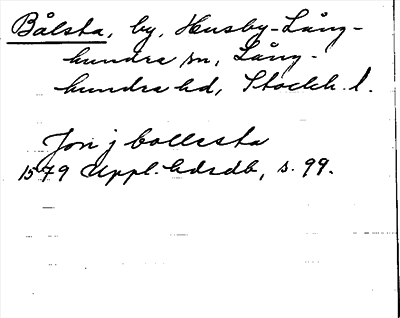 Bålsta, by, Husby-Lång-
hundra sn, Lång-
hundra hd, Stockh. l.
Jon j bollsta
1579 Uppl. hdrdb, s. 99.